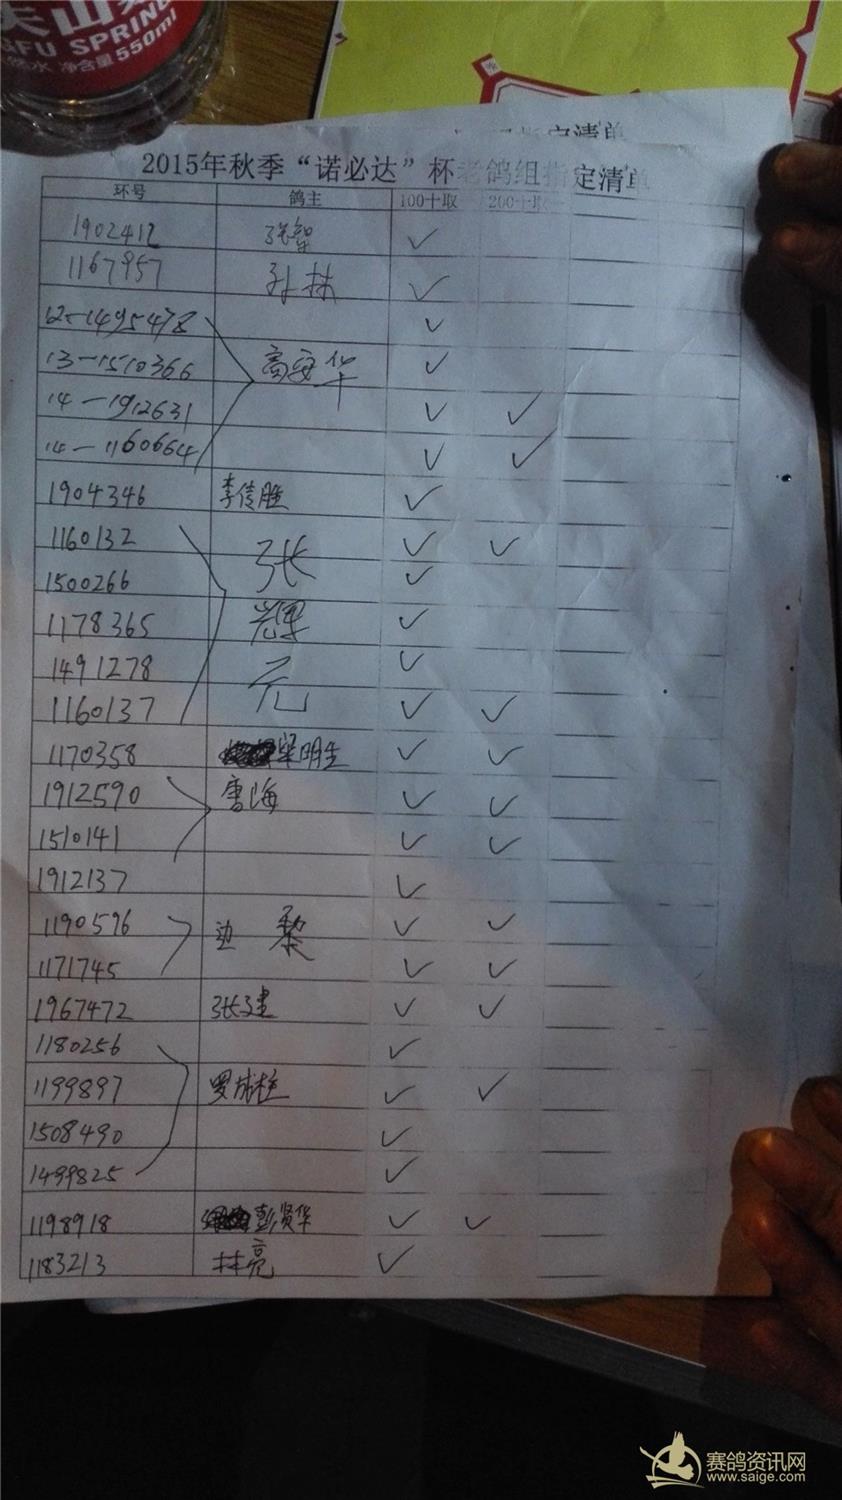 GFU SPRING
净含量550ml
定清单
2015年秋季“诺必达”杯老鸽组指定清单
环号 鸽主 100十取 200十取
1902412 张智 ✓
1167957 孙林 ✓
12-1495478 ✓
13-1510366 高安华 ✓
14-1912631 ✓ ✓
14-1160664 ✓ ✓
1904346 李传胜 ✓
1160132 张 ✓ ✓
1500266 ✓
1178365 辉 ✓
1491278 ✓
1160137 元 ✓ ✓
1170358 梁明生 ✓ ✓
1912590 唐海 ✓ ✓
1510141 ✓ ✓
1912137 ✓
1190596 边黎 ✓ ✓
1171745 ✓ ✓
1967472 张建 ✓ ✓
1180256 ✓
1199897 罗成柱 ✓ ✓
1508490 ✓
1499825 ✓
1198918 彭贤华 ✓ ✓
1183213 林亮 ✓
赛鸽资讯网
www.saige.com